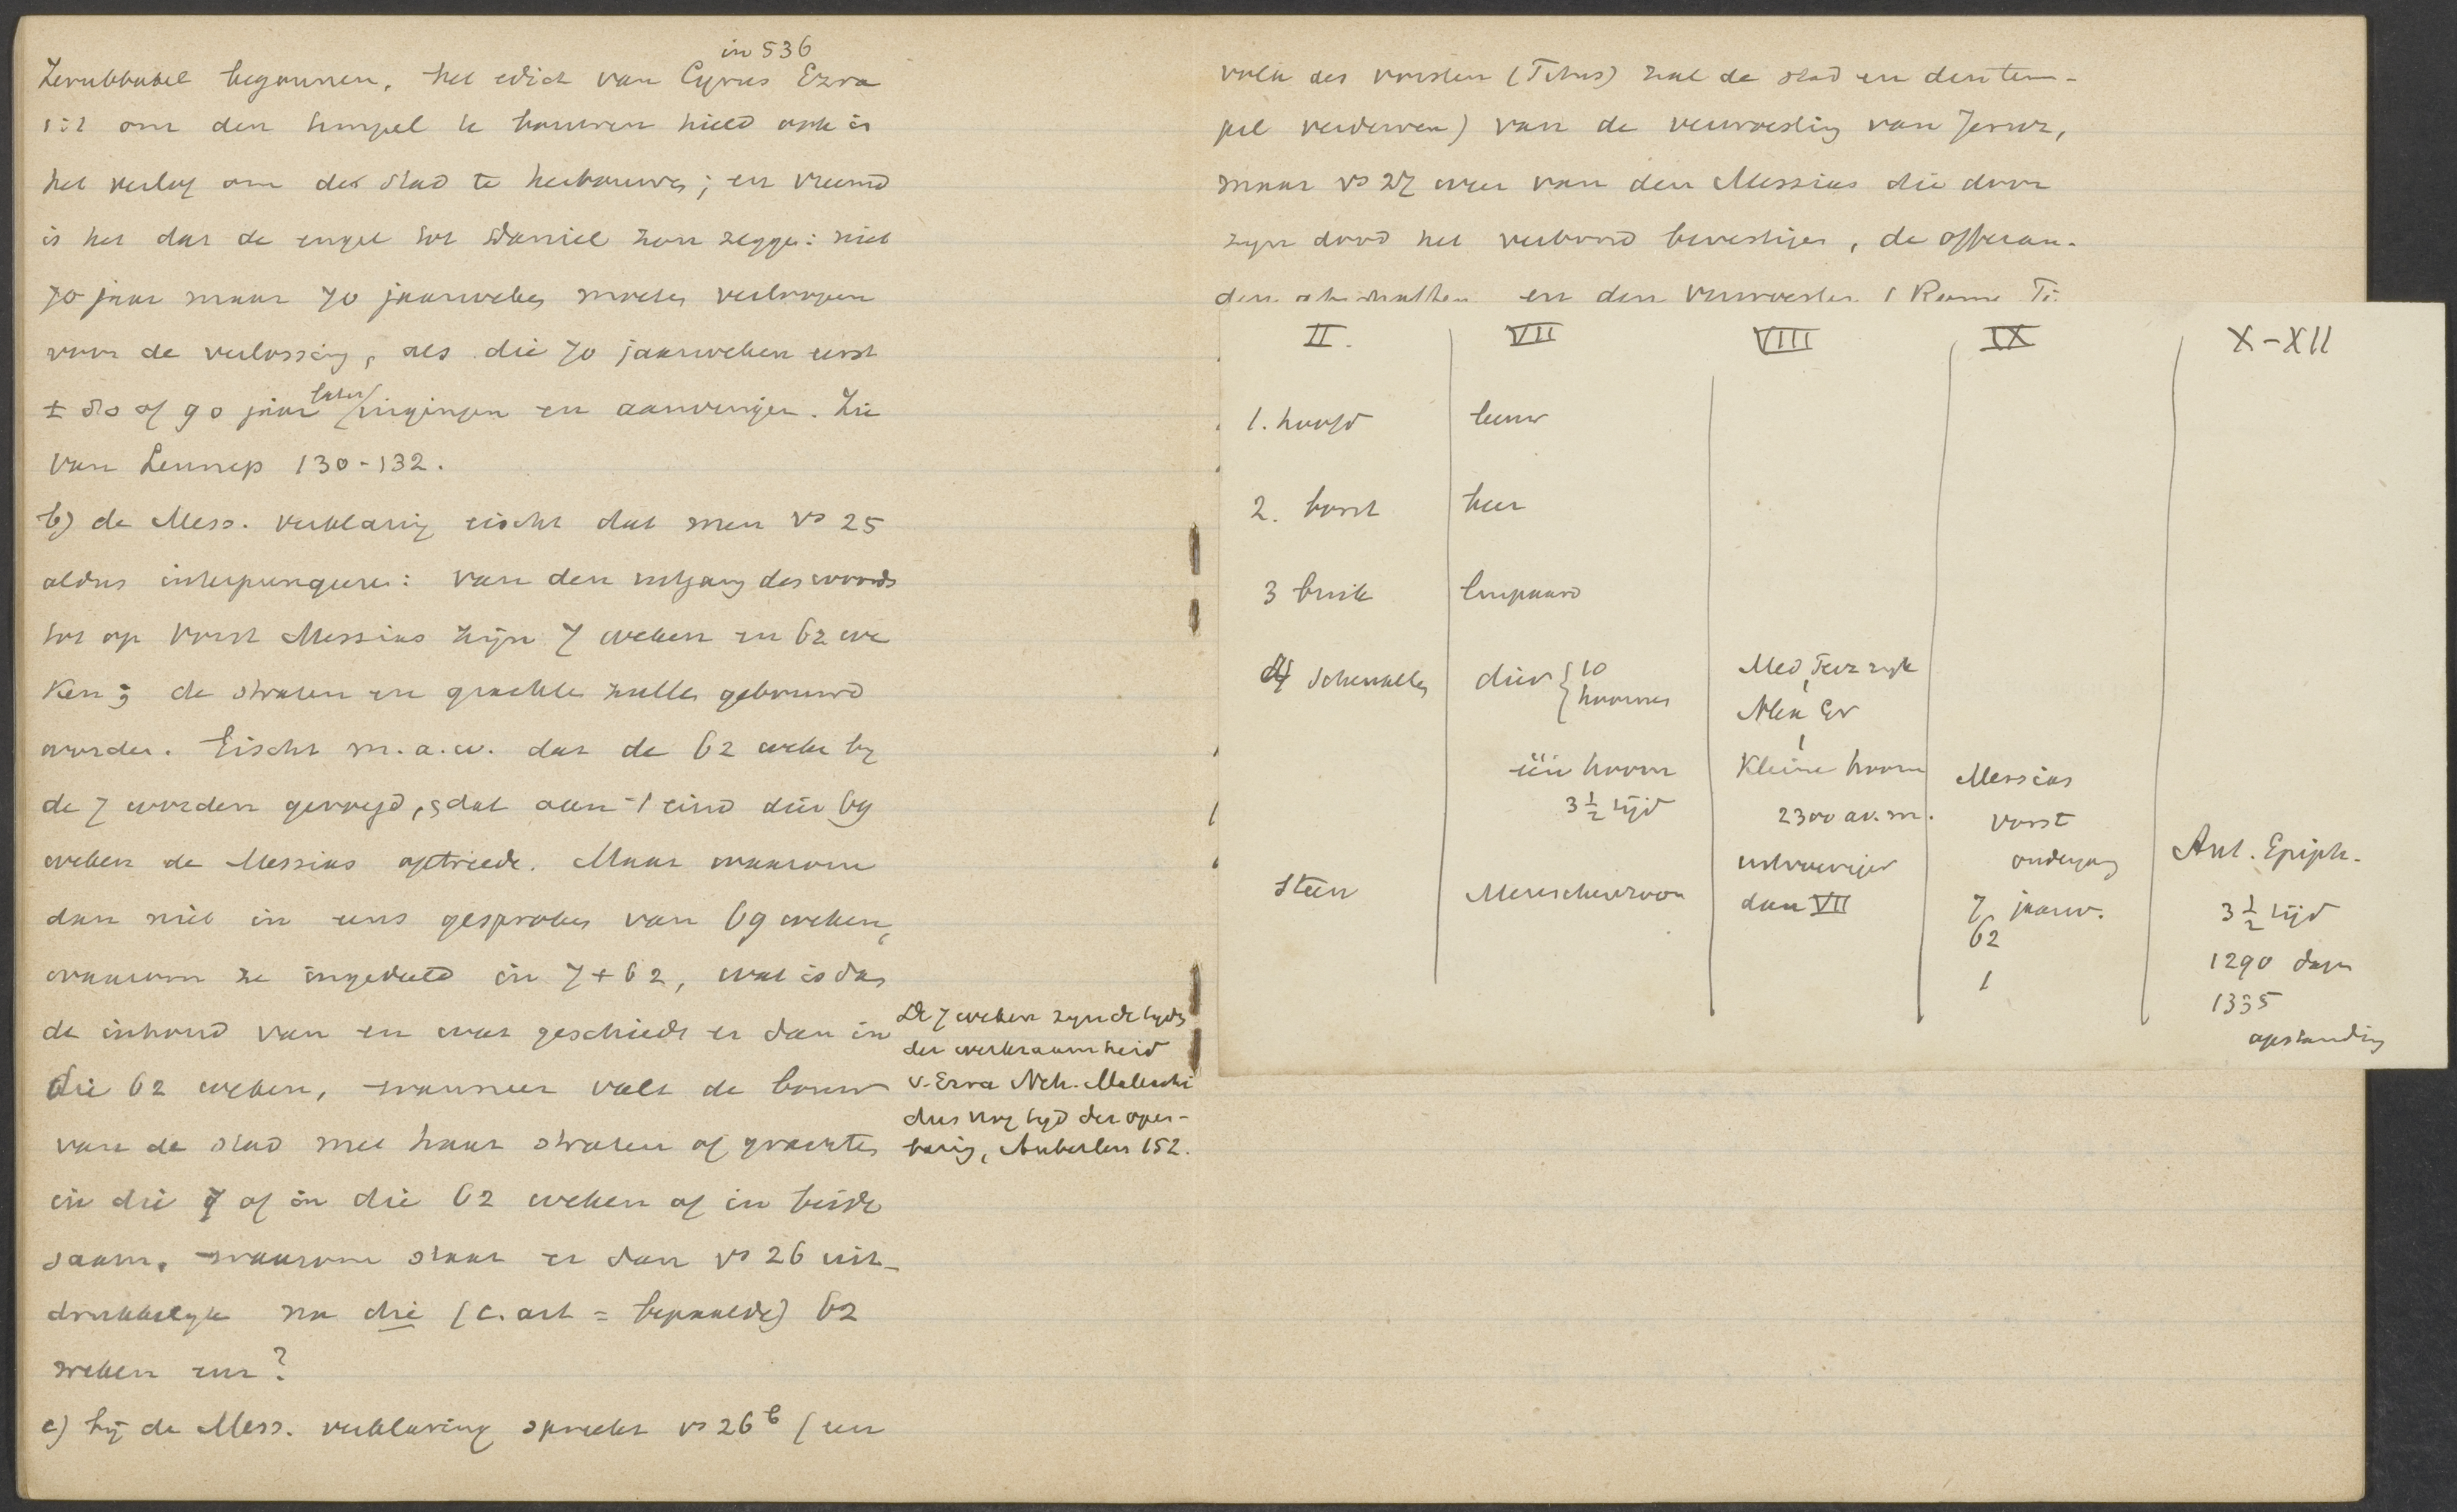 in 536
Zerubbabel begonnen, het edict van Cyrus Ezra
1:2 om den tempel te bouwen hield ook in
het verlof om de stad te herbouwen; en vreemd
is het dat de engel tot Daniel zou zeggen: niet
70 jaar maar 70 jaarweken moeten verloopen
voor de verlossing, als die 70 jaarweken eerst
± 80 of 90 jaar later ingingen en aanvingen. Zie
van Lennep 130-132.
b) de Mess. verklaring eischt dat men vs 25
aldus interpungeere: van den uitgang des woords
tot op Vorst Messias zijn 7 weken en 62 we
ken; de straten en grachten zullen gebouwd
worden. Eischt m.a.w. dat de 62 weken by
de 7 worden gevoegd, zdat aan 't eind dier 69
weken de Messias optreede. Maar waarom
dan niet in eens gesproken van 69 weken,
waarom ze ingedeeld in 7 + 62, wat is dan
de inhoud van en wat geschiedt er dan in
die 62 weken, wanneer valt de bouw
van de stad met haar straten of grachten
in die 7 of in die 62 weken of in beide
saam, waarom staat er dan vs 26 uit-
drukkelyk na die (c. art = bepaalde) 62
weken enz?
c) bij de Mess. verklaring spreekt vs 26b (een
De 7 weken zyn de tyds
der werkzaamheid
v. Ezra Neh. Maleachi
dus nog tyd der open-
baring, Auberlen 152.
volk des vorsten (Titus) zal de stad en den tem-
pel verderven) van de verwoesting van Jeruz,
maar vs 27 weer van den Messias die door
zyn dood het verbond bevestigen, de offeran-
den en den verwoester
II. VII VIII IX X-XII
1. hoofd leeuw
2. borst beer
3 buik luipaard
4 schenkels dier { 10 hoornen Med Perz ryk
Alex Gr
één hoorn Kleine hoorn Messias
3 1/2 tijd 2300 av. m. vorst
ondergang Ant. Epiph.
Steen Menschenzoon dan VII 7 jaarw. 3 1/2 tijd
62
1 1290 dagen
1335
opstanding